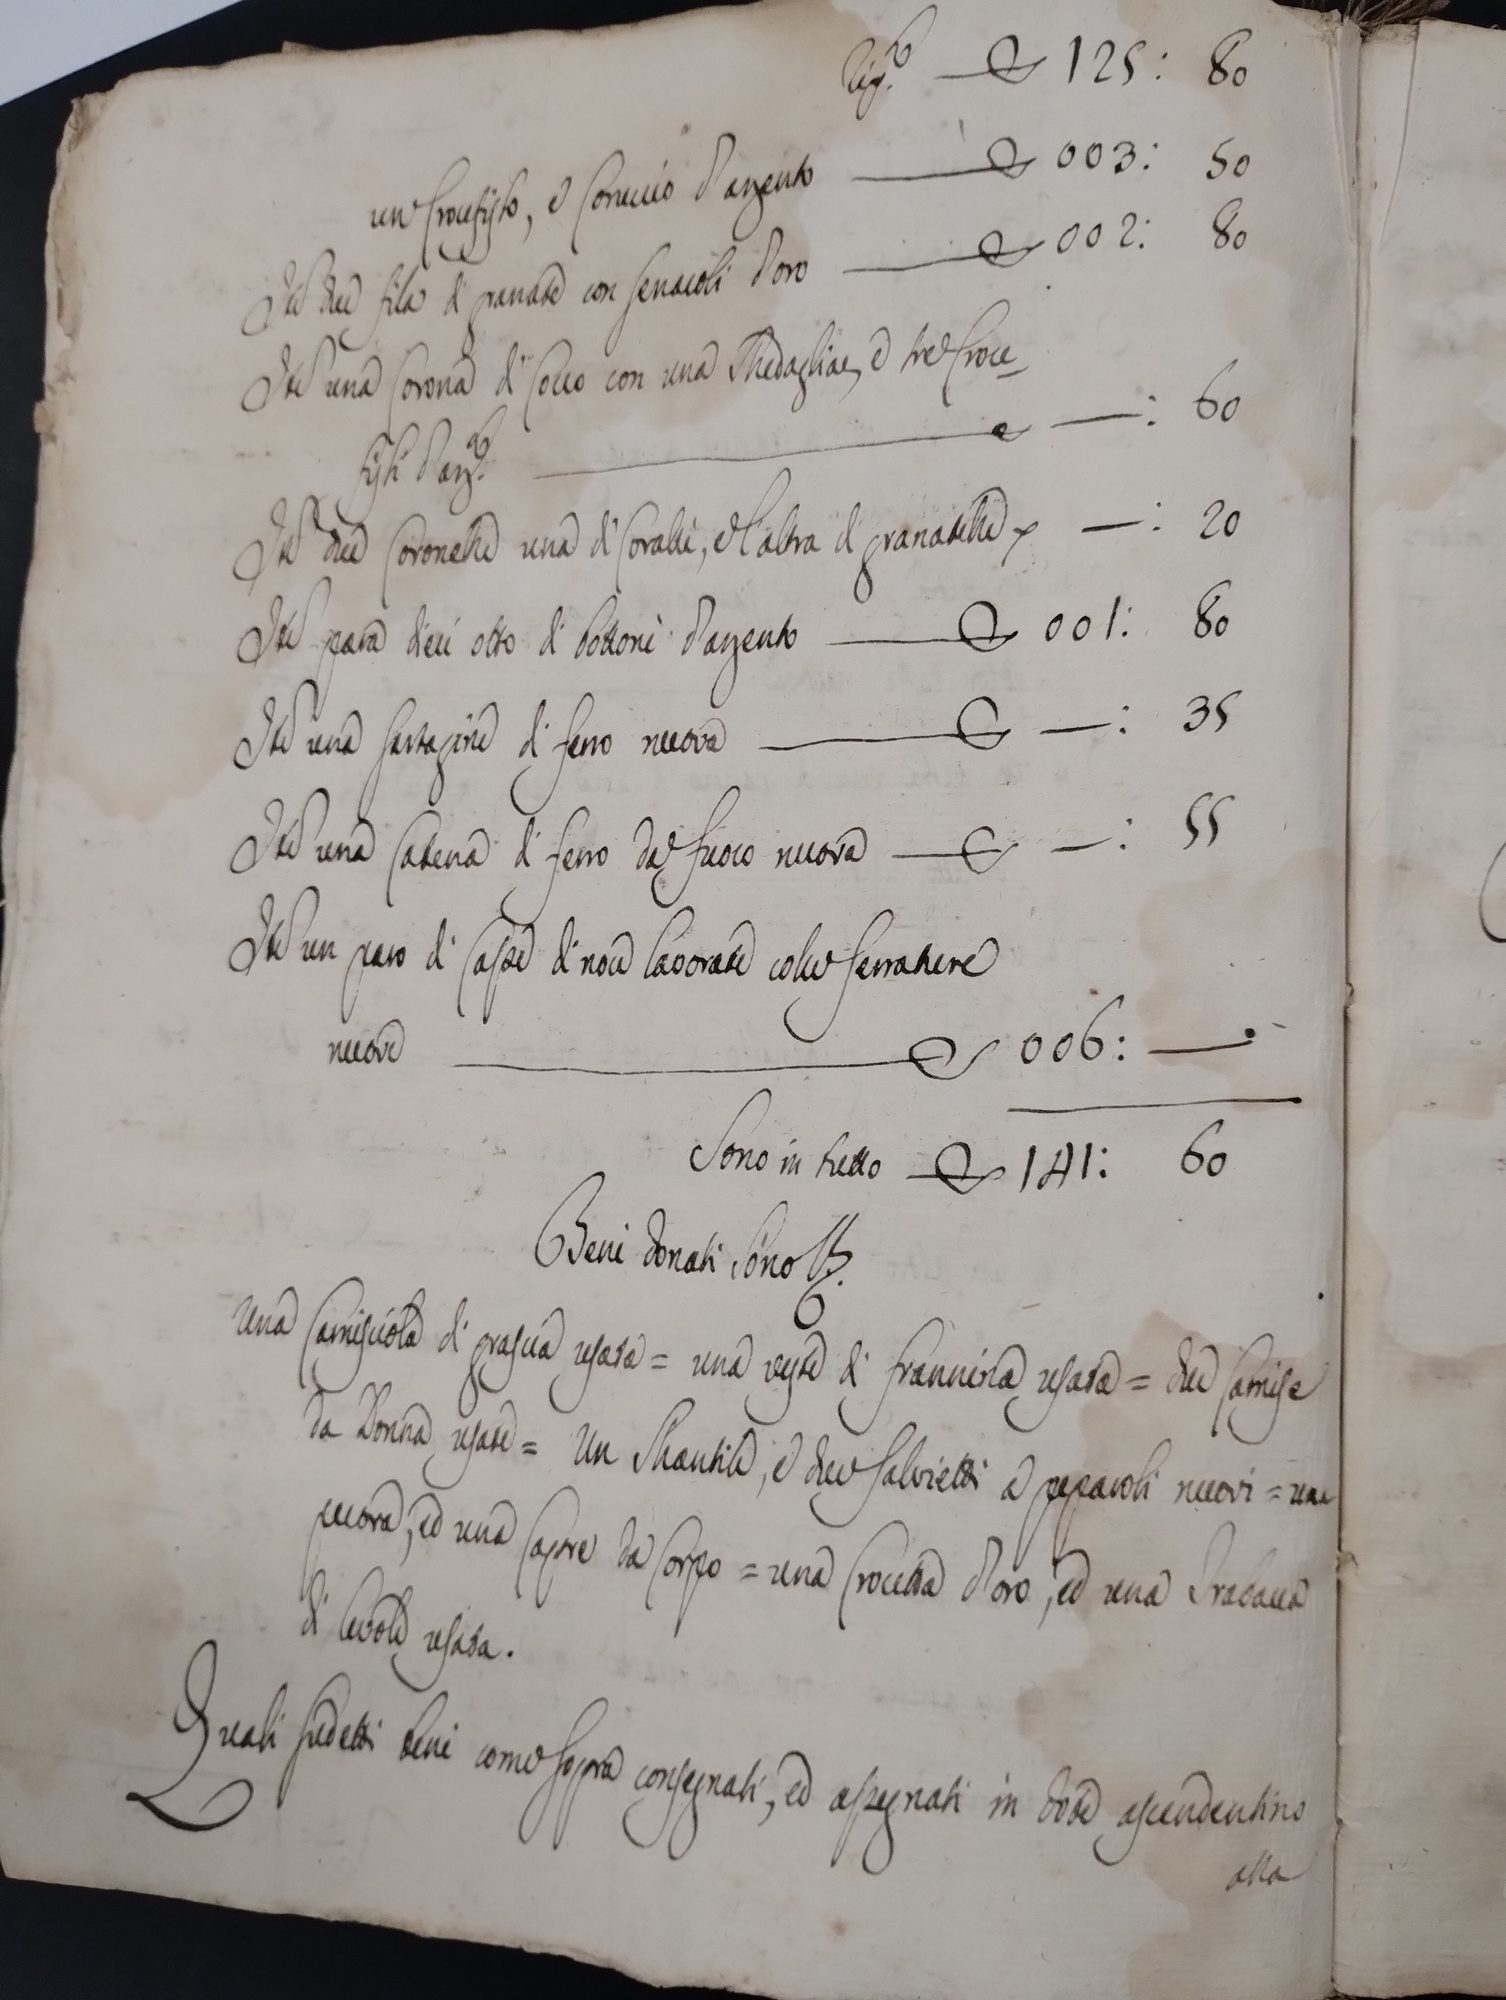 Rip.to — ▽ 125: 80
un Crocefisto, e Corniccio d'argento — ▽ 003: 50
Itē due fila di granate con senacoli d'oro — ▽ 002: 80
Itē una Corona di Cocco con una Medaglia, e tre Croce=
fisti d'arg.to — : 60
Itē due Coronette una di Coralli, e l'altra di granatelle — : 20
Itē para dieci otto di bottoni d'argento — ▽ 001: 80
Itē una sartagine di ferro nuova — ▽ — : 35
Itē una Catena di ferro da fuoco nuova — ▽ — : 55
Itē un paro di Casse di noce lavorate colle serrature
nuove — ▽ 006: —
Sono in tutto ▽ 141: 60
Beni donati sono
una Camisciola di usata = una veste di usata = due Camise
da Donna usate = Un Mantile, e due salvietti a nuovi = una
pecora, ed una Capre da Corpo = una Crocetta d'oro, ed una Trabacca
di usata.
Quali sudetti beni come sopra consegnati, ed assegnati in dote ascendentino
alla